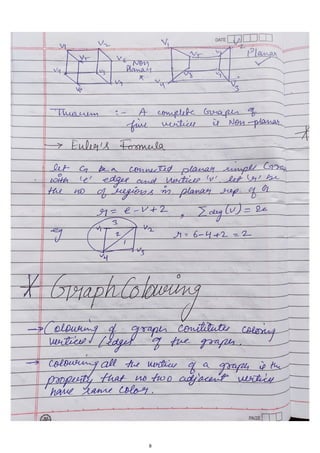 DATE
V1 V2 V1 2
V5 V6 Non Planar V5 Planar
V4 V3 V4 V3
Theorem :- A complete Graph of
five vertices is Non-planar
→ Euler's Formula
let G be a connected planar simple Graph
with 'e' edges and vertices 'v'. let 'r' be
the no of regions in planar rep. of G
r = e - v + 2 , Σ deg(v) = 2e
eg V1 3 V2 r = 6-4+2 = 2
2
1
V4 V3
Graph Colouring
→ Colouring of graph constitute coloring
vertices / edges of the graph.
→ colouring all the vertices of a graph is the
property that no two adjacent vertices
have same color.
PAGE
9